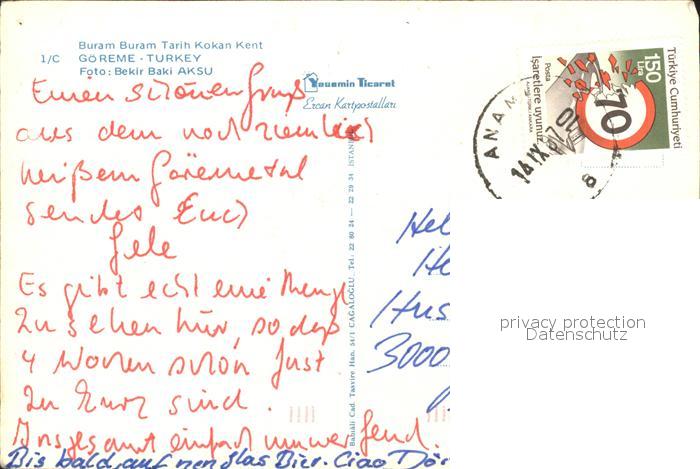 Buram Buram Tarih Kokan Kent
1/C GÖREME - TURKEY
Foto: Bekir Baki AKSU
Yasemin Ticaret
Ercan Kartpostalları
Babıali Cad. Tasvire Han. 54/1 CAĞALOĞLU, Tel: 22 80 24 — 22 29 34 İSTANBUL
Einen schönen Gruß
aus dem noch ziemlich
heißem Göremetal
sendet Euch
Es gibt echt eine Menge
zu sehen hier, so daß
4 Wochen schon fast
zu kurz sind.
Insgesamt einfach umwerfend.
Bis bald, auf nen Glas Bier. Ciao Dör
Hel
He
Hus
3000
Türkiye Cumhuriyeti
150 Lira
70
Posta
İşaretlere uyunuz
ANAM
14 IX 87
8
privacy protection
Datenschutz